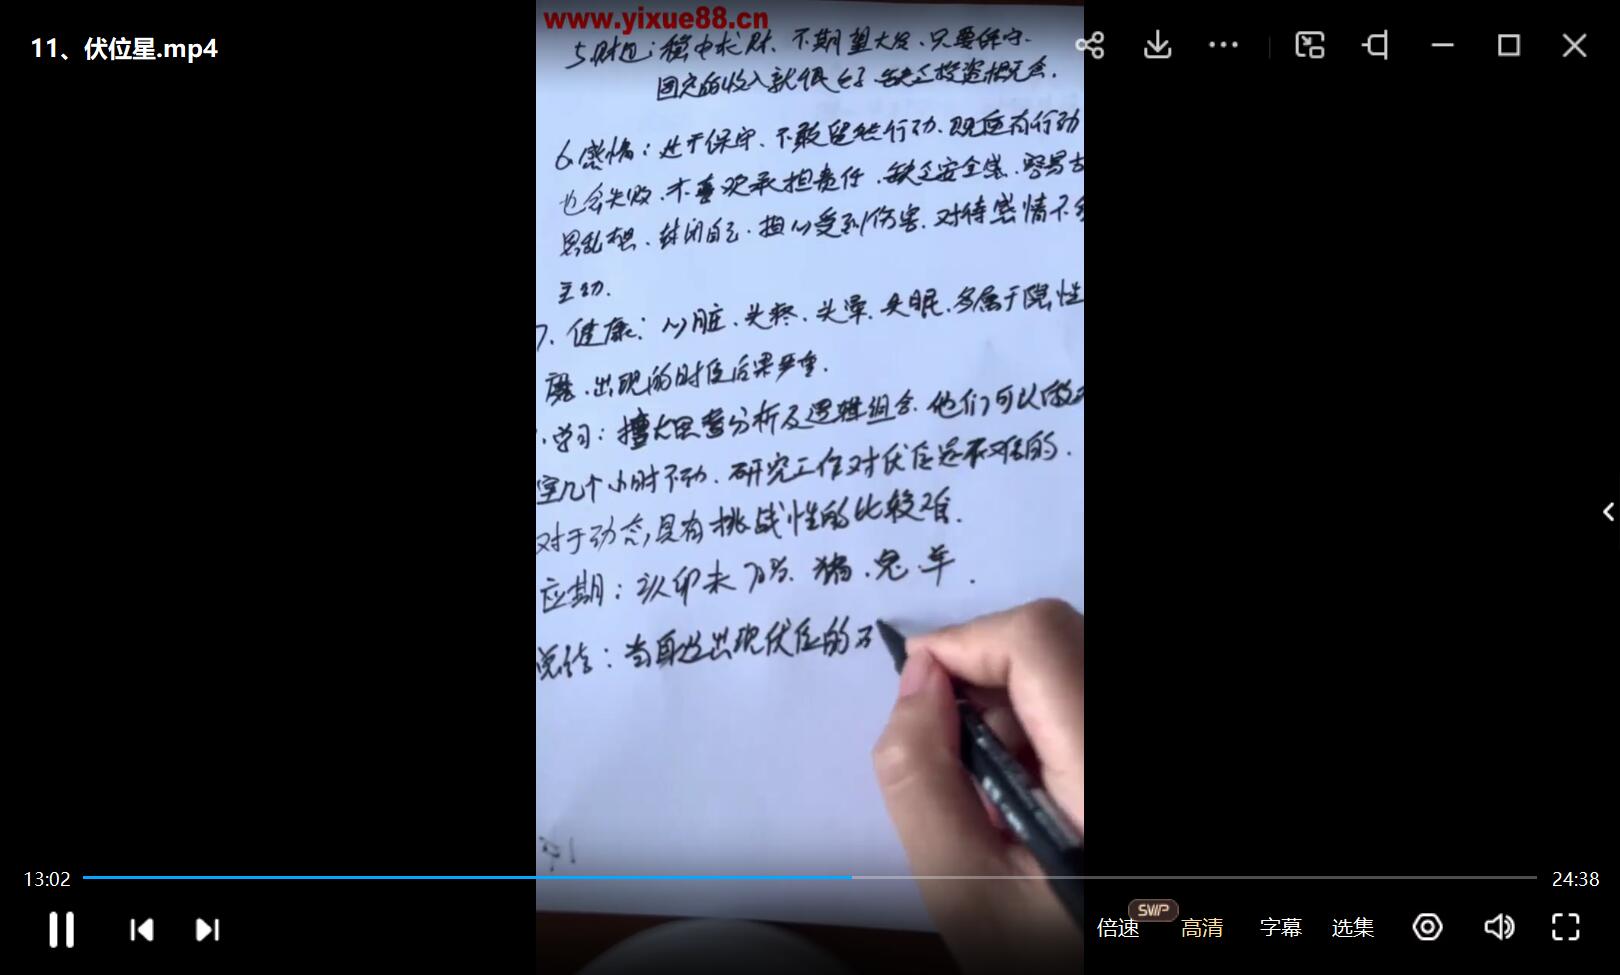 www.yixue88.cn
11、伏位星.mp4
5.财运:稳中求财、不期望大发、只要保守、
固定的收入就很好、缺乏投资机会.
6.感情:处于保守、不敢冒然行动、既使有行动
也会失败、不喜欢承担责任、缺乏安全感、容易
思乱想、封闭自己、担心受到伤害、对待感情不
主动.
7、健康:心脏、头疼、头晕、失眠、多属于隐性
出现的时候后果严重.
学习:擅长思考分析及逻辑组合、他们可以做
室几个小时不动、研究工作对伏位是不难的.
对于动态,具有挑战性的比较难.
应期:亥卯未 猪、兔、羊.
总结:当身边出现伏位的
13:02
24:38
倍速
SVIP
高清
字幕
选集